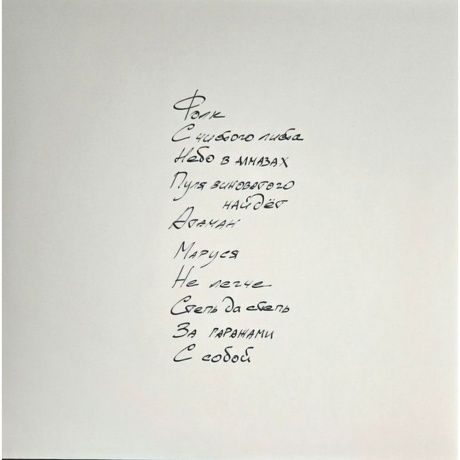 Фолк
С чистого листа
Небо в алмазах
Пуля виноватого
найдёт
Атаман
Маруся
Не легче
Степь да степь
За гаражами
С собой